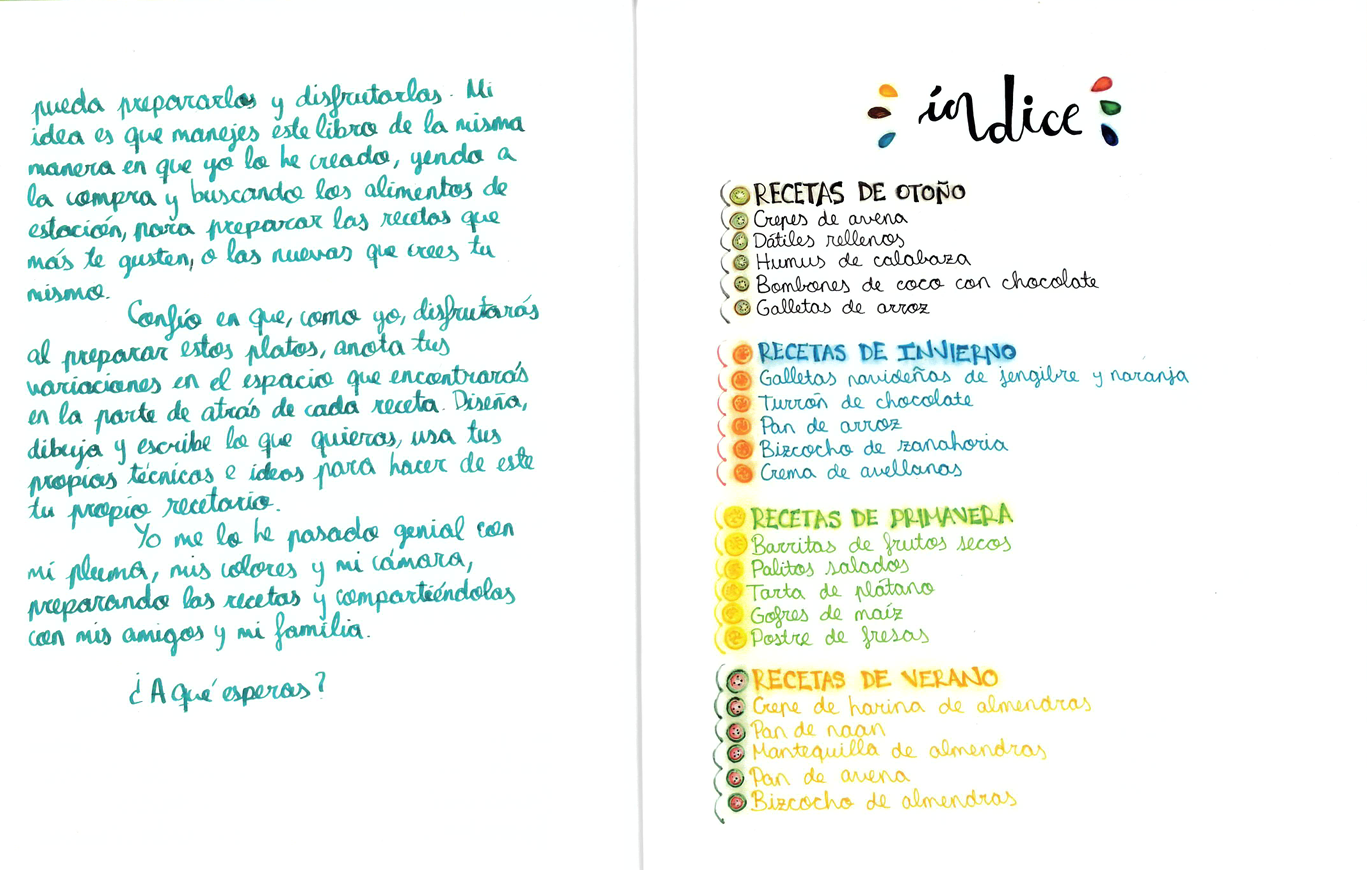 pueda prepararlas y disfrutarlas. Mi
idea es que manejes este libro de la misma
manera en que yo lo he creado, yendo a
la compra y buscando los alimentos de
estación, para preparar las recetas que
más te gusten, o las nuevas que crees tu
mismo.
Confío en que, como yo, disfrutarás
al preparar estos platos, anota tus
variaciones en el espacio que encontrarás
en la parte de atrás de cada receta. Diseña,
dibuja y escribe lo que quieras, usa tus
propias técnicas e ideas para hacer de este
tu propio recetario.
Yo me lo he pasado genial con
mi pluma, mis colores y mi cámara,
preparando las recetas y compartiéndolas
con mis amigos y mi familia.
¿A qué esperas?
índice
RECETAS DE OTOÑO
Crepes de avena
Dátiles rellenos
Humus de calabaza
Bombones de coco con chocolate
Galletas de arroz
RECETAS DE INVIERNO
Galletas navideñas de jengibre y naranja
Turrón de chocolate
Pan de arroz
Bizcocho de zanahoria
Crema de avellanas
RECETAS DE PRIMAVERA
Barritas de frutos secos
Palitos salados
Tarta de plátano
Gofres de maíz
Postre de fresas
RECETAS DE VERANO
Crepe de harina de almendras
Pan de naan
Mantequilla de almendras
Pan de avena
Bizcocho de almendras